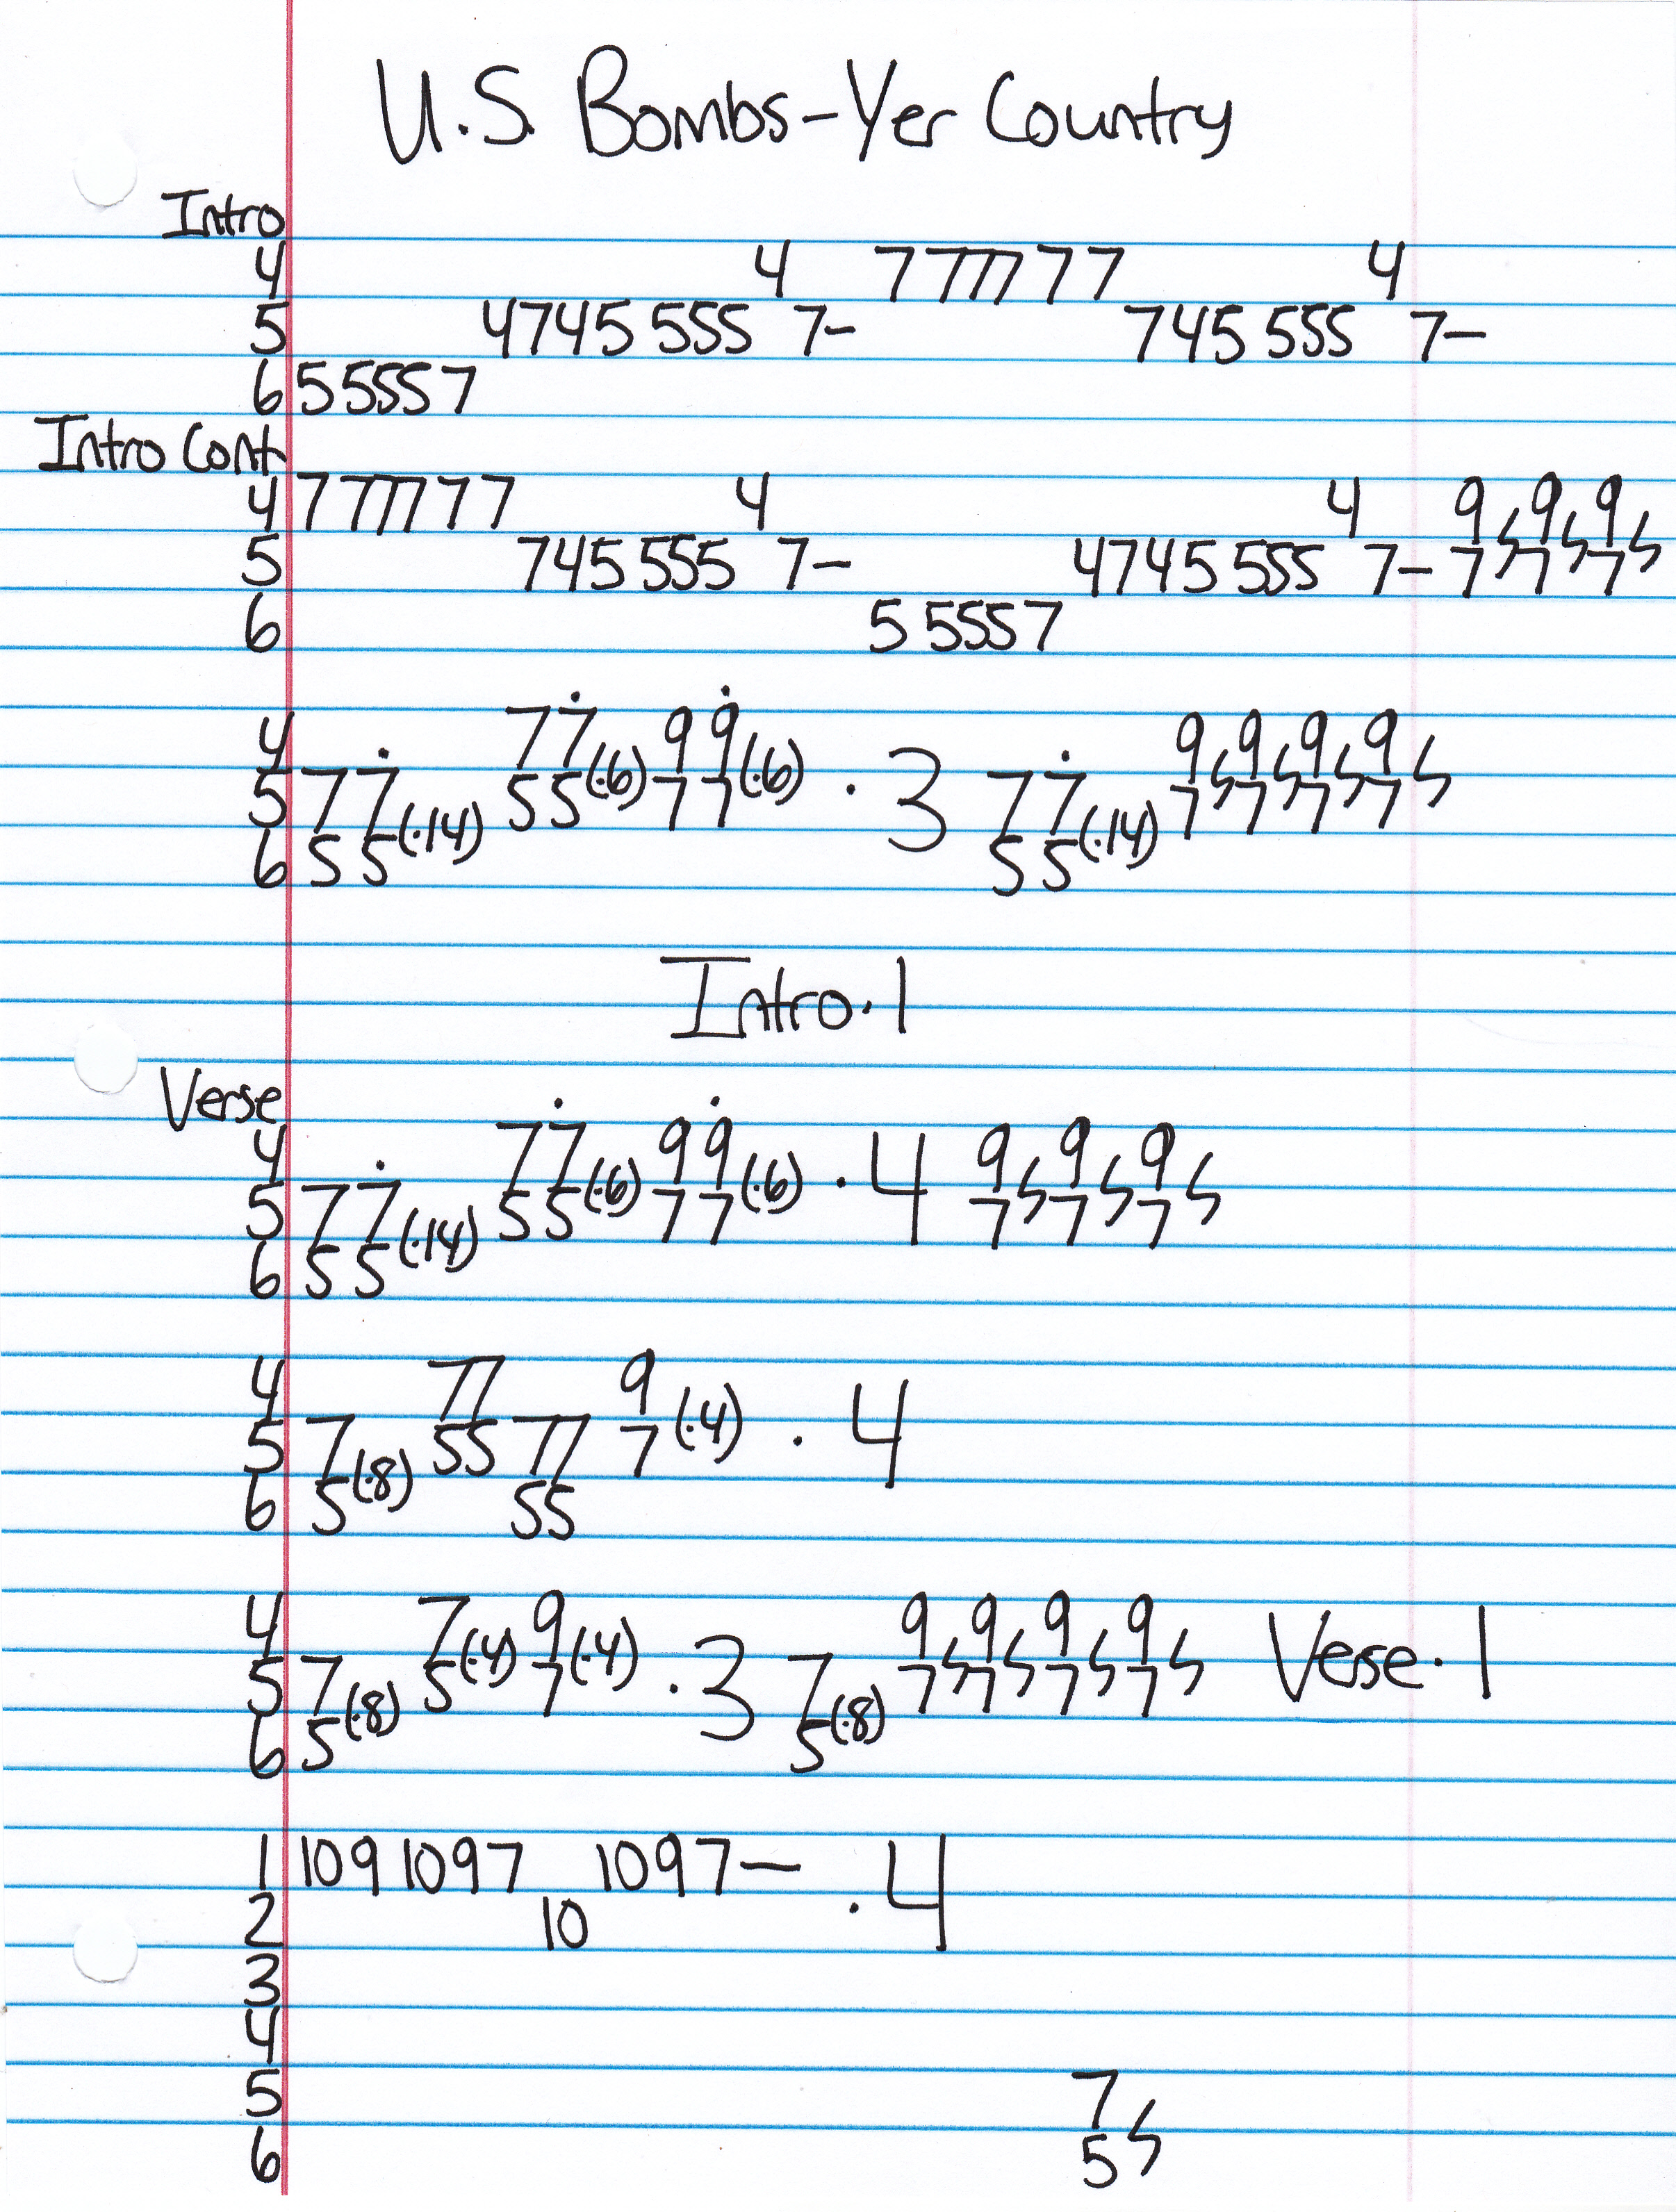 U.S. Bombs-Yer Country
Intro
4 4 7 7777 7 7 4
5 4745 555 7- 745 555 7-
6 5 5557
Intro Cont
4 7 7777 7 7 4 4 9 9 9
5 745 555 7- 4745 555 7- 7 7 7
6 5 5557
4 7 7 (·6) 9 9 (·6) 9 9 9 9
5 7 7 (·14) 5 5 7 7 · 3 7 7 (·14) 7 7 7 7
6 5 5 5 5
Intro·1
Verse
4 7 7 (·6) 9 9 (·6) 9 9 9
5 7 7 (·14) 5 5 7 7 · 4 7 7 7
6 5 5
4 77 9
5 7 (·8) 55 77 7 (·4) · 4
6 5 55
4 7 (·4) 9 (·4) 9 9 9 9
5 7 (·8) 5 7 · 3 7 (·8) 7 7 7 7 Verse·1
6 5 5
1 109 1097 1097—
2 10 · 4
3
4
5 7
6 5